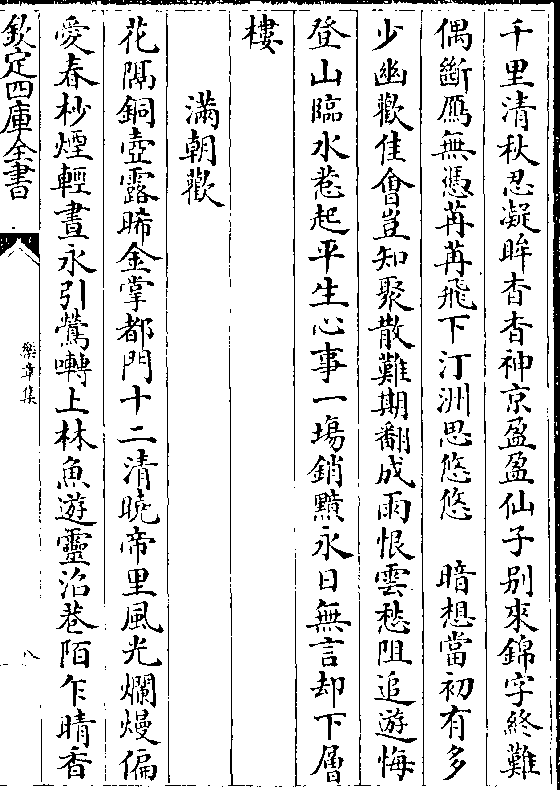 千里清秋忍凝眸杳杳神京盈盈仙子别來錦字終難
偶斷鴈無憑苒苒飛下汀洲思悠悠　暗想當初有多
少幽歡佳會豈知聚散難期翻成雨恨雲愁阻追遊悔
登山臨水惹起平生心事一場銷黯永日無言却下層
樓
滿朝歡
花隔銅壺露晞金掌都門十二清曉帝里風光爛熳偏
愛春杪煙輕晝永引鶯囀上林魚遊靈沼巷陌乍晴香
欽定四庫全書
樂章集
八